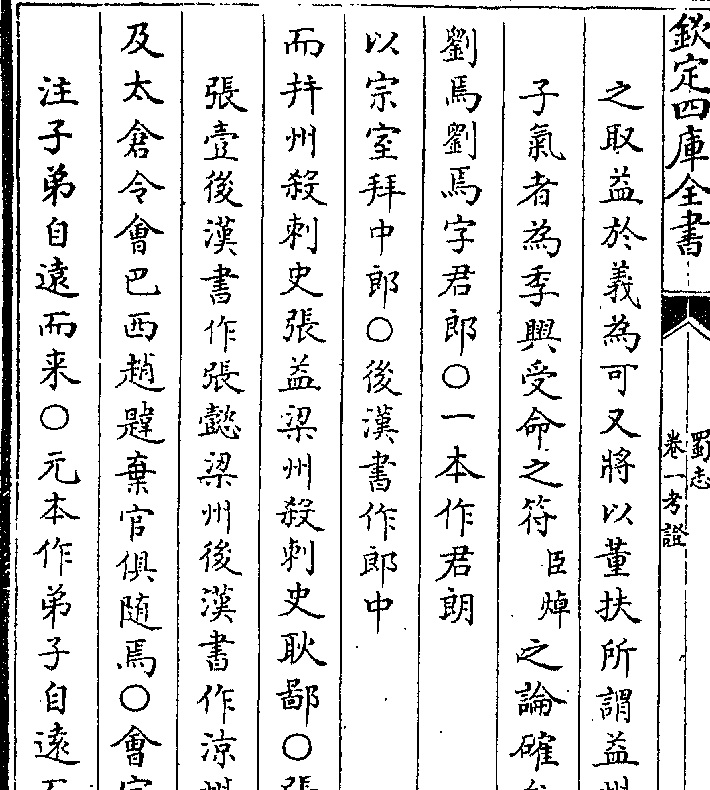 欽定四庫全書
蜀志
卷一考證
之取益於義為可又將以董扶所謂益州
子氣者為季興受命之符臣焯之論確
劉焉劉焉字君郎○一本作君朗
以宗室拜中郎○後漢書作郎中
而并州殺刺史張益梁州殺刺史耿鄙○張
張壹後漢書作張懿梁州後漢書作涼州
及太倉令會巴西趙韙棄官俱随焉○會
注子弟自遠而来○元本作弟子自遠